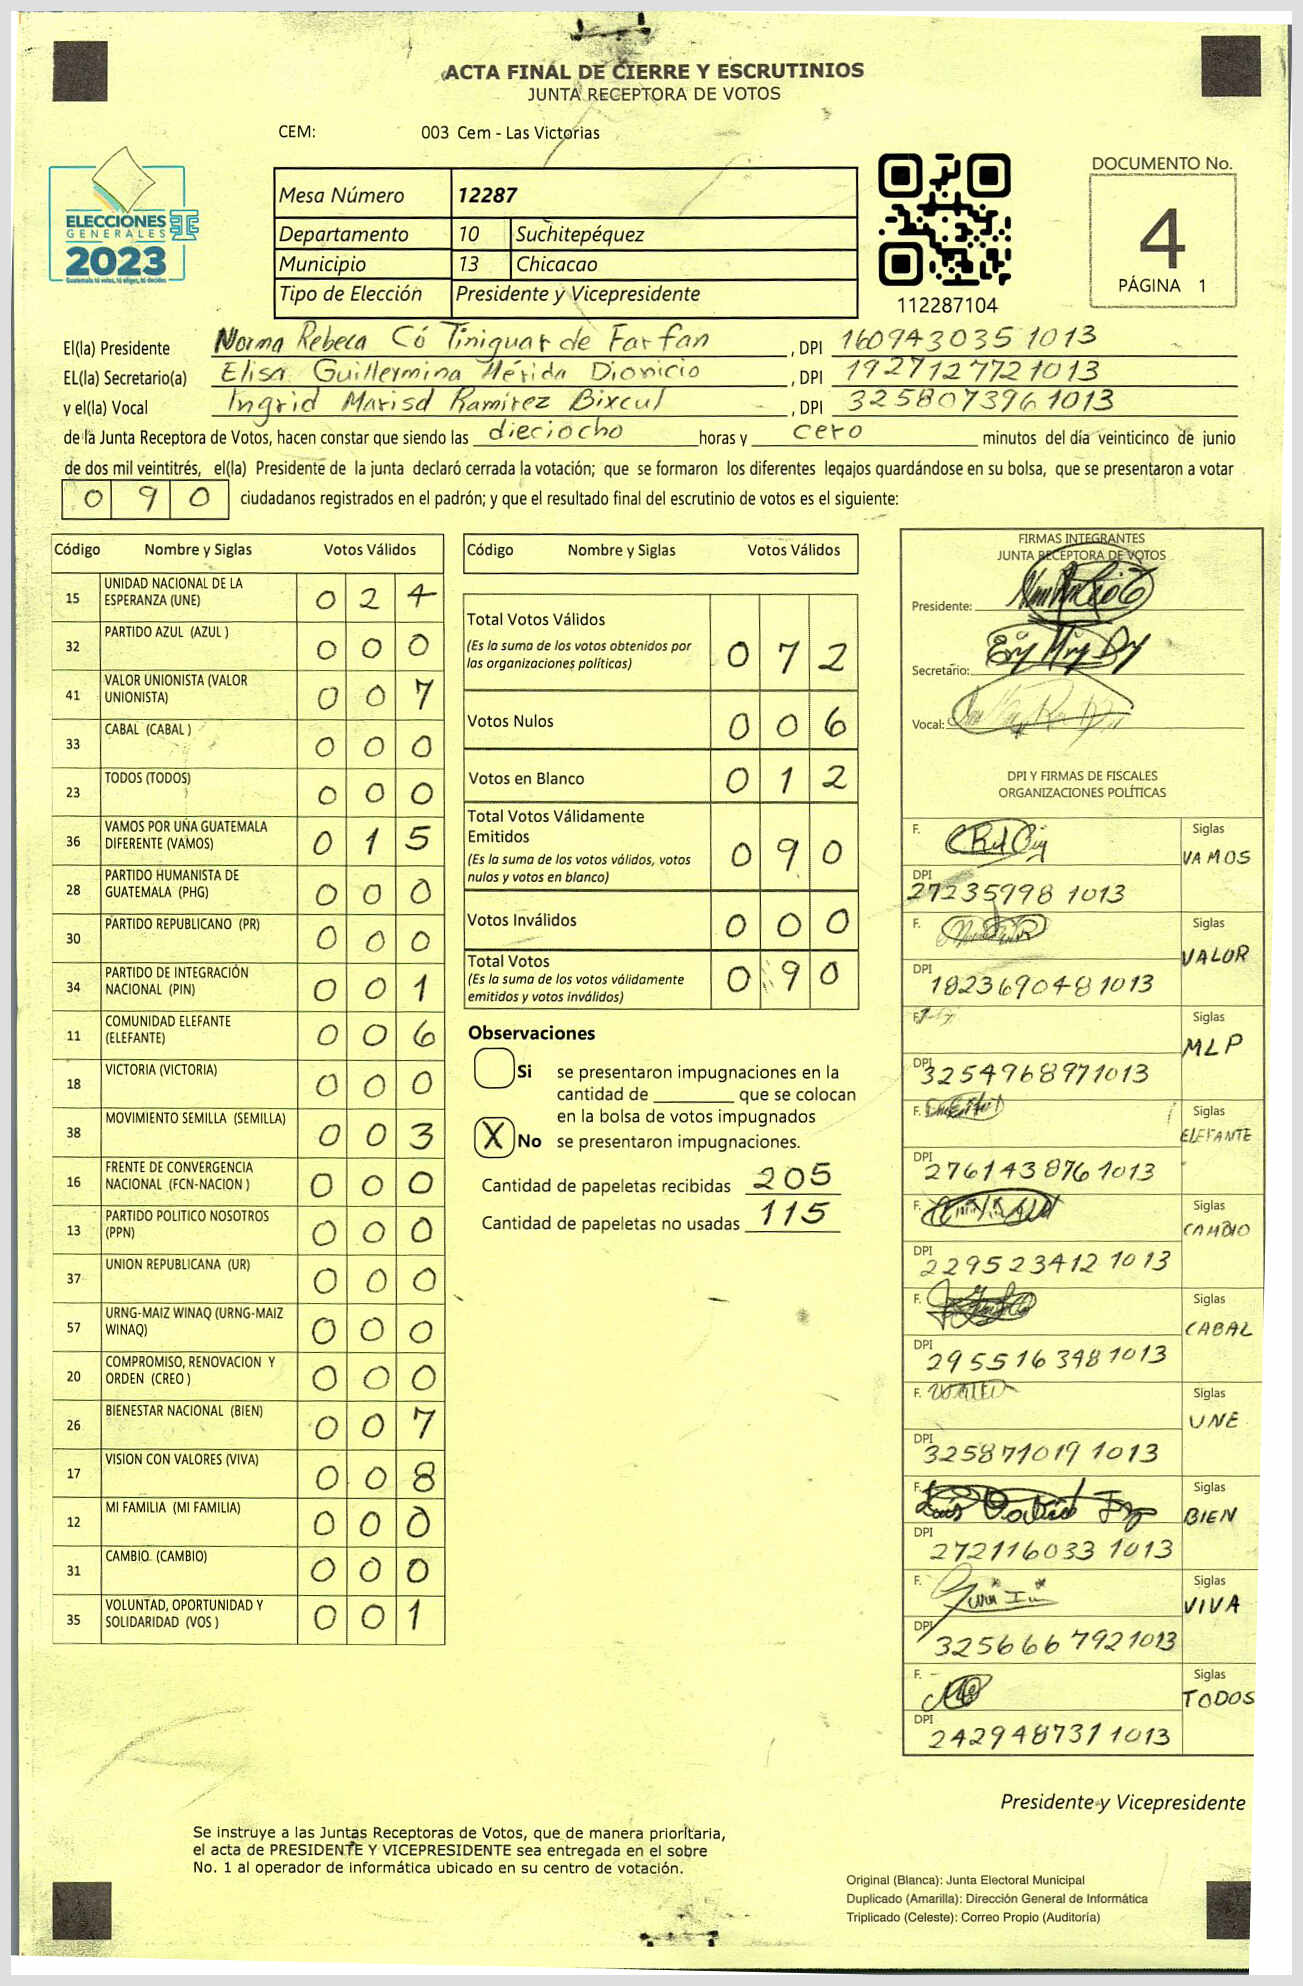 ACTA FINAL DE CIERRE Y ESCRUTINIOS
JUNTA RECEPTORA DE VOTOS
CEM: 003 Cem - Las Victorias
ELECCIONES
GENERALES
2023
Guatemala tú votas, tú eliges, tú decides
Mesa Número 12287
Departamento 10 Suchitepéquez
Municipio 13 Chicacao
Tipo de Elección Presidente y Vicepresidente
112287104
DOCUMENTO No.
4
PÁGINA 1
El(la) Presidente Norma Rebeca Có Tiniguar de Farfan , DPI 1609430351013
EL(la) Secretario(a) Elisa Guillermina Mérida Dionicio , DPI 1927127721013
y el(la) Vocal Ingrid Marisol Ramírez Bixcul , DPI 3258073961013
de la Junta Receptora de Votos, hacen constar que siendo las dieciocho horas y cero minutos del día veinticinco de junio
de dos mil veintitrés, el(la) Presidente de la junta declaró cerrada la votación; que se formaron los diferentes legajos guardándose en su bolsa, que se presentaron a votar
0 9 0 ciudadanos registrados en el padrón; y que el resultado final del escrutinio de votos es el siguiente:
Código Nombre y Siglas Votos Válidos
15 UNIDAD NACIONAL DE LA
ESPERANZA (UNE) 0 2 4
32 PARTIDO AZUL (AZUL ) 0 0 0
41 VALOR UNIONISTA (VALOR
UNIONISTA) 0 0 7
33 CABAL (CABAL ) 0 0 0
23 TODOS (TODOS) 0 0 0
36 VAMOS POR UNA GUATEMALA
DIFERENTE (VAMOS) 0 1 5
28 PARTIDO HUMANISTA DE
GUATEMALA (PHG) 0 0 0
30 PARTIDO REPUBLICANO (PR) 0 0 0
34 PARTIDO DE INTEGRACIÓN
NACIONAL (PIN) 0 0 1
11 COMUNIDAD ELEFANTE
(ELEFANTE) 0 0 6
18 VICTORIA (VICTORIA) 0 0 0
38 MOVIMIENTO SEMILLA (SEMILLA) 0 0 3
16 FRENTE DE CONVERGENCIA
NACIONAL (FCN-NACION ) 0 0 0
13 PARTIDO POLITICO NOSOTROS
(PPN) 0 0 0
37 UNION REPUBLICANA (UR) 0 0 0
57 URNG-MAIZ WINAQ (URNG-MAIZ
WINAQ) 0 0 0
20 COMPROMISO, RENOVACION Y
ORDEN (CREO ) 0 0 0
26 BIENESTAR NACIONAL (BIEN) 0 0 7
17 VISION CON VALORES (VIVA) 0 0 8
12 MI FAMILIA (MI FAMILIA) 0 0 0
31 CAMBIO (CAMBIO) 0 0 0
35 VOLUNTAD, OPORTUNIDAD Y
SOLIDARIDAD (VOS ) 0 0 1
Código Nombre y Siglas Votos Válidos
Total Votos Válidos
(Es la suma de los votos obtenidos por
las organizaciones políticas) 0 7 2
Votos Nulos 0 0 6
Votos en Blanco 0 1 2
Total Votos Válidamente
Emitidos
(Es la suma de los votos válidos, votos
nulos y votos en blanco) 0 9 0
Votos Inválidos 0 0 0
Total Votos
(Es la suma de los votos válidamente
emitidos y votos inválidos) 0 9 0
Observaciones
Si se presentaron impugnaciones en la
cantidad de ________ que se colocan
en la bolsa de votos impugnados
X No se presentaron impugnaciones.
Cantidad de papeletas recibidas 205
Cantidad de papeletas no usadas 115
FIRMAS INTEGRANTES
JUNTA RECEPTORA DE VOTOS
Presidente:
Secretario:
Vocal:
DPI Y FIRMAS DE FISCALES
ORGANIZACIONES POLÍTICAS
F. Siglas
VAMOS
DPI
27235998 1013
F. Siglas
VALOR
DPI
1823690481013
F. Siglas
MLP
DPI
3254968971013
F. Siglas
ELEFANTE
DPI
2761438761013
F. Siglas
CAMBIO
DPI
229523412 1013
F. Siglas
CABAL
DPI
2955163981013
F. Siglas
UNE
DPI
325871019 1013
F. Siglas
BIEN
DPI
272116033 1013
F. Siglas
VIVA
DPI
3256667921013
F. Siglas
TODOS
DPI
242948731 1013
Presidente y Vicepresidente
Se instruye a las Juntas Receptoras de Votos, que de manera prioritaria,
el acta de PRESIDENTE Y VICEPRESIDENTE sea entregada en el sobre
No. 1 al operador de informática ubicado en su centro de votación.
Original (Blanca): Junta Electoral Municipal
Duplicado (Amarilla): Dirección General de Informática
Triplicado (Celeste): Correo Propio (Auditoría)